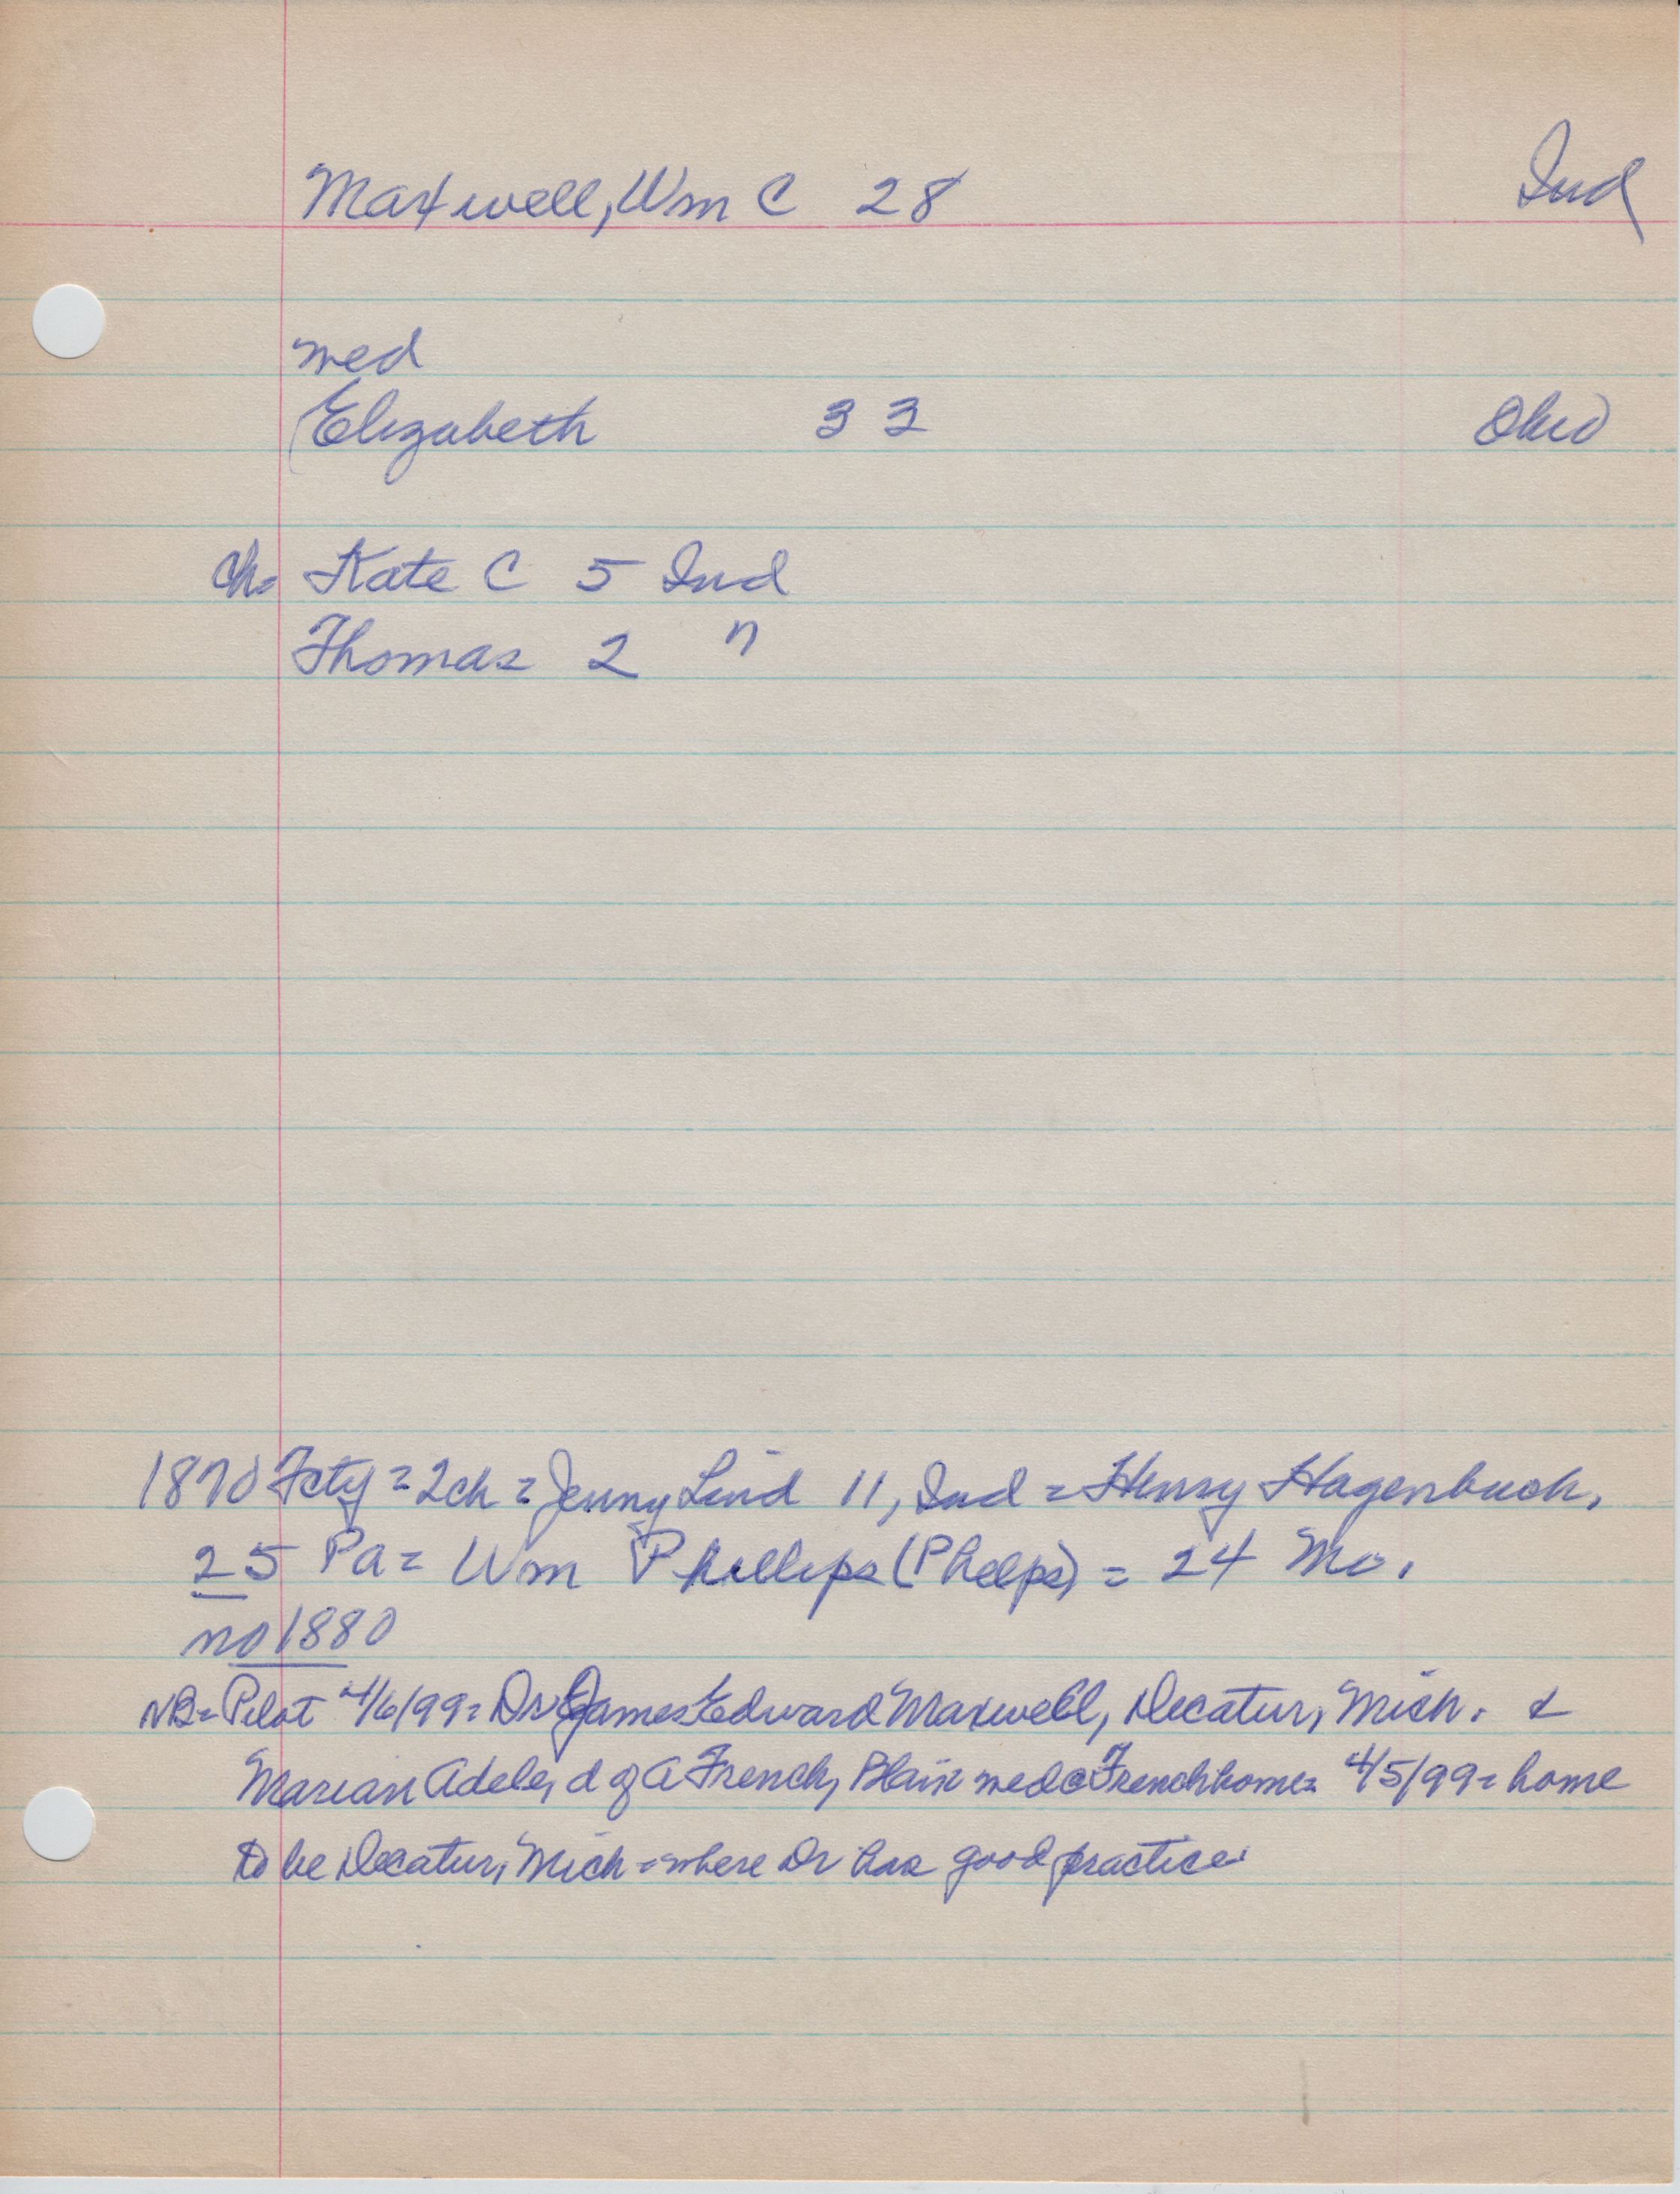 Maxwell, Wm C 28 Ind
med
Elizabeth 33 Ohio
ch= Kate C 5 Ind
Thomas 2 "
1870 Fcty = 2ch = Jenny Lind 11, Ind = Henry Hagenbuch,
25 Pa = Wm Phillips (Phelps) = 24 Mo.
no 1880
NB= Pilot 4/6/99= Dr James Edward Maxwell, Decatur, Mich. &
Marian Adele, d of A French, Blair med @ French home= 4/5/99= home
to be Decatur, Mich = where Dr has good practice